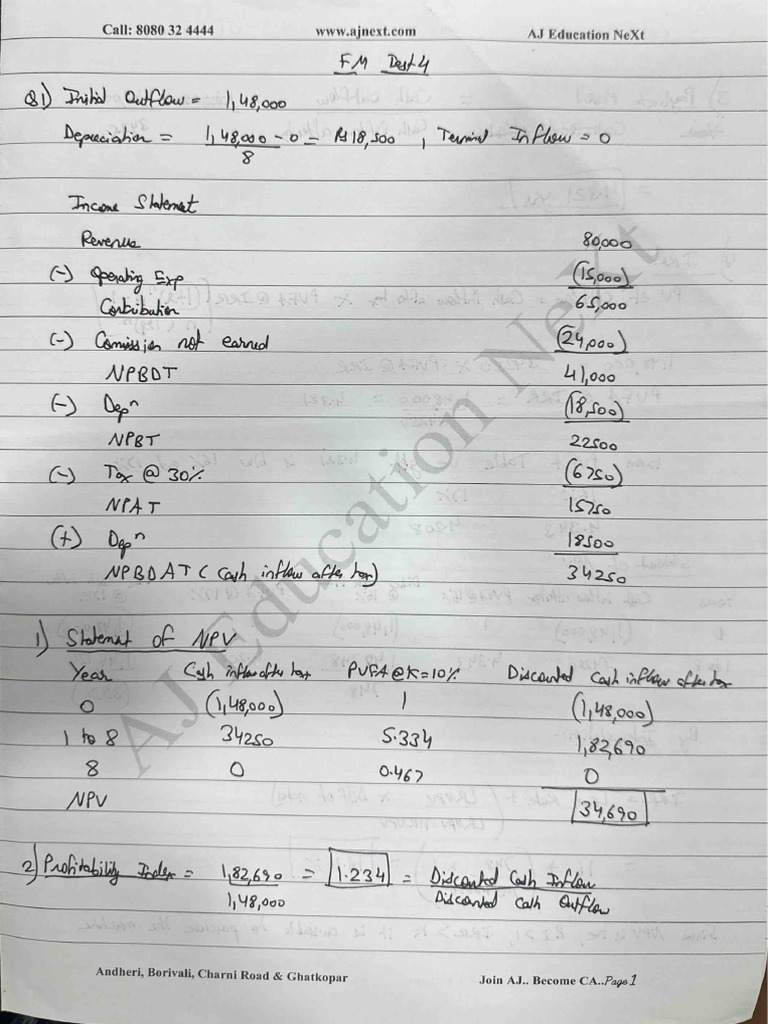 Call: 8080 32 4444 www.ajnext.com AJ Education NeXt
FM Test 4
Q1) Initial Outflow = 1,48,000
Depreciation = 1,48,000 - 0 = Rs 18,500 , Terminal Inflow = 0
8
Income Statement
Revenue 80,000
(-) Operating Exp (15,000)
Contribution 65,000
(-) Comission not earned (24,000)
NPBDT 41,000
(-) Depn (18,500)
NPBT 22500
(-) Tax @ 30% (6750)
NPAT 15750
(+) Depn 18500
NPBDAT ( Cash inflow after tax) 34250
1) Statement of NPV
Year Cash inflow after tax PVFA @ K=10% Discounted Cash inflow after tax
0 (1,48,000) 1 (1,48,000)
1 to 8 34250 5.334 1,82,690
8 0 0.467 0
NPV 34,690
2) Profitability Index = 1,82,690 = 1.234 = Discounted Cash Inflow
1,48,000 Discounted Cash Outflow
AJ Education NeXt
Andheri, Borivali, Charni Road & Ghatkopar Join AJ.. Become CA..Page 1